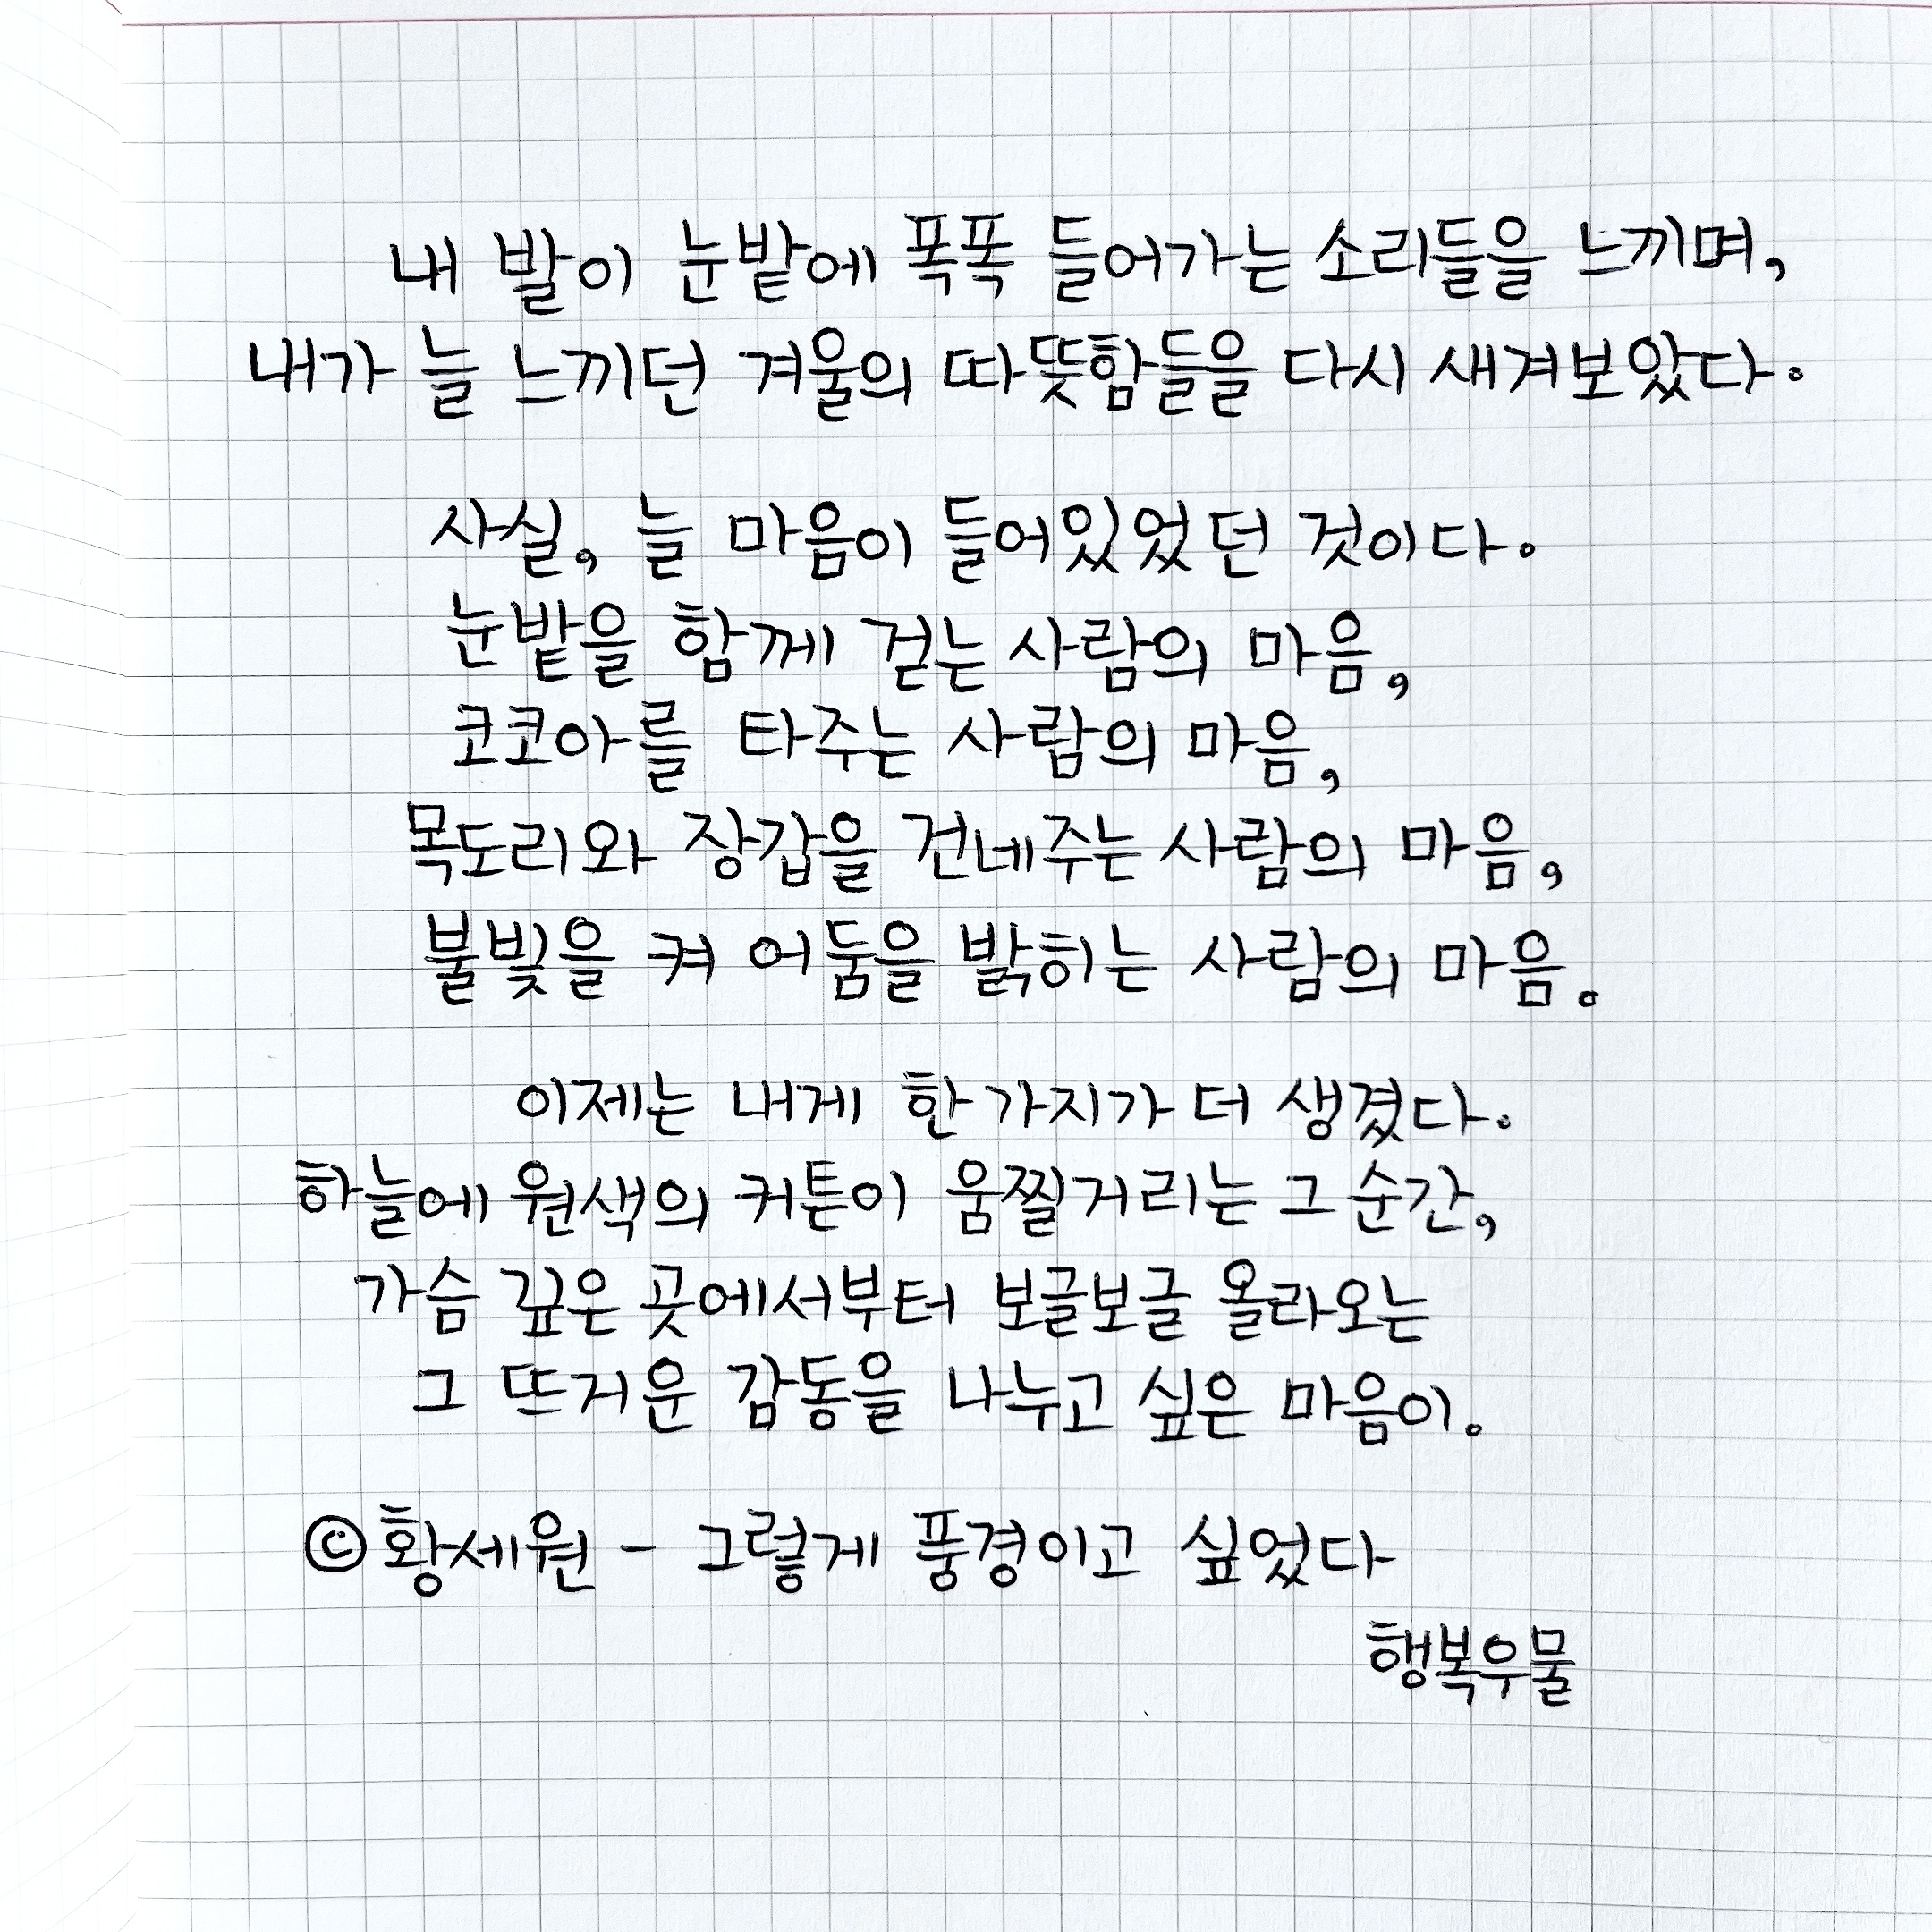 내 발이 눈밭에 폭폭 들어가는 소리들을 느끼며,
내가 늘 느끼던 겨울의 따뜻함들을 다시 새겨보았다.
사실, 늘 마음이 들어있었던 것이다.
눈밭을 함께 걷는 사람의 마음,
코코아를 타주는 사람의 마음,
목도리와 장갑을 건네주는 사람의 마음,
불빛을 켜 어둠을 밝히는 사람의 마음.
이제는 내게 한 가지가 더 생겼다.
하늘에 원색의 커튼이 움찔거리는 그 순간,
가슴 깊은 곳에서부터 보글보글 올라오는
그 뜨거운 감동을 나누고 싶은 마음이.
©황세원 - 그렇게 풍경이고 싶었다
행복우물